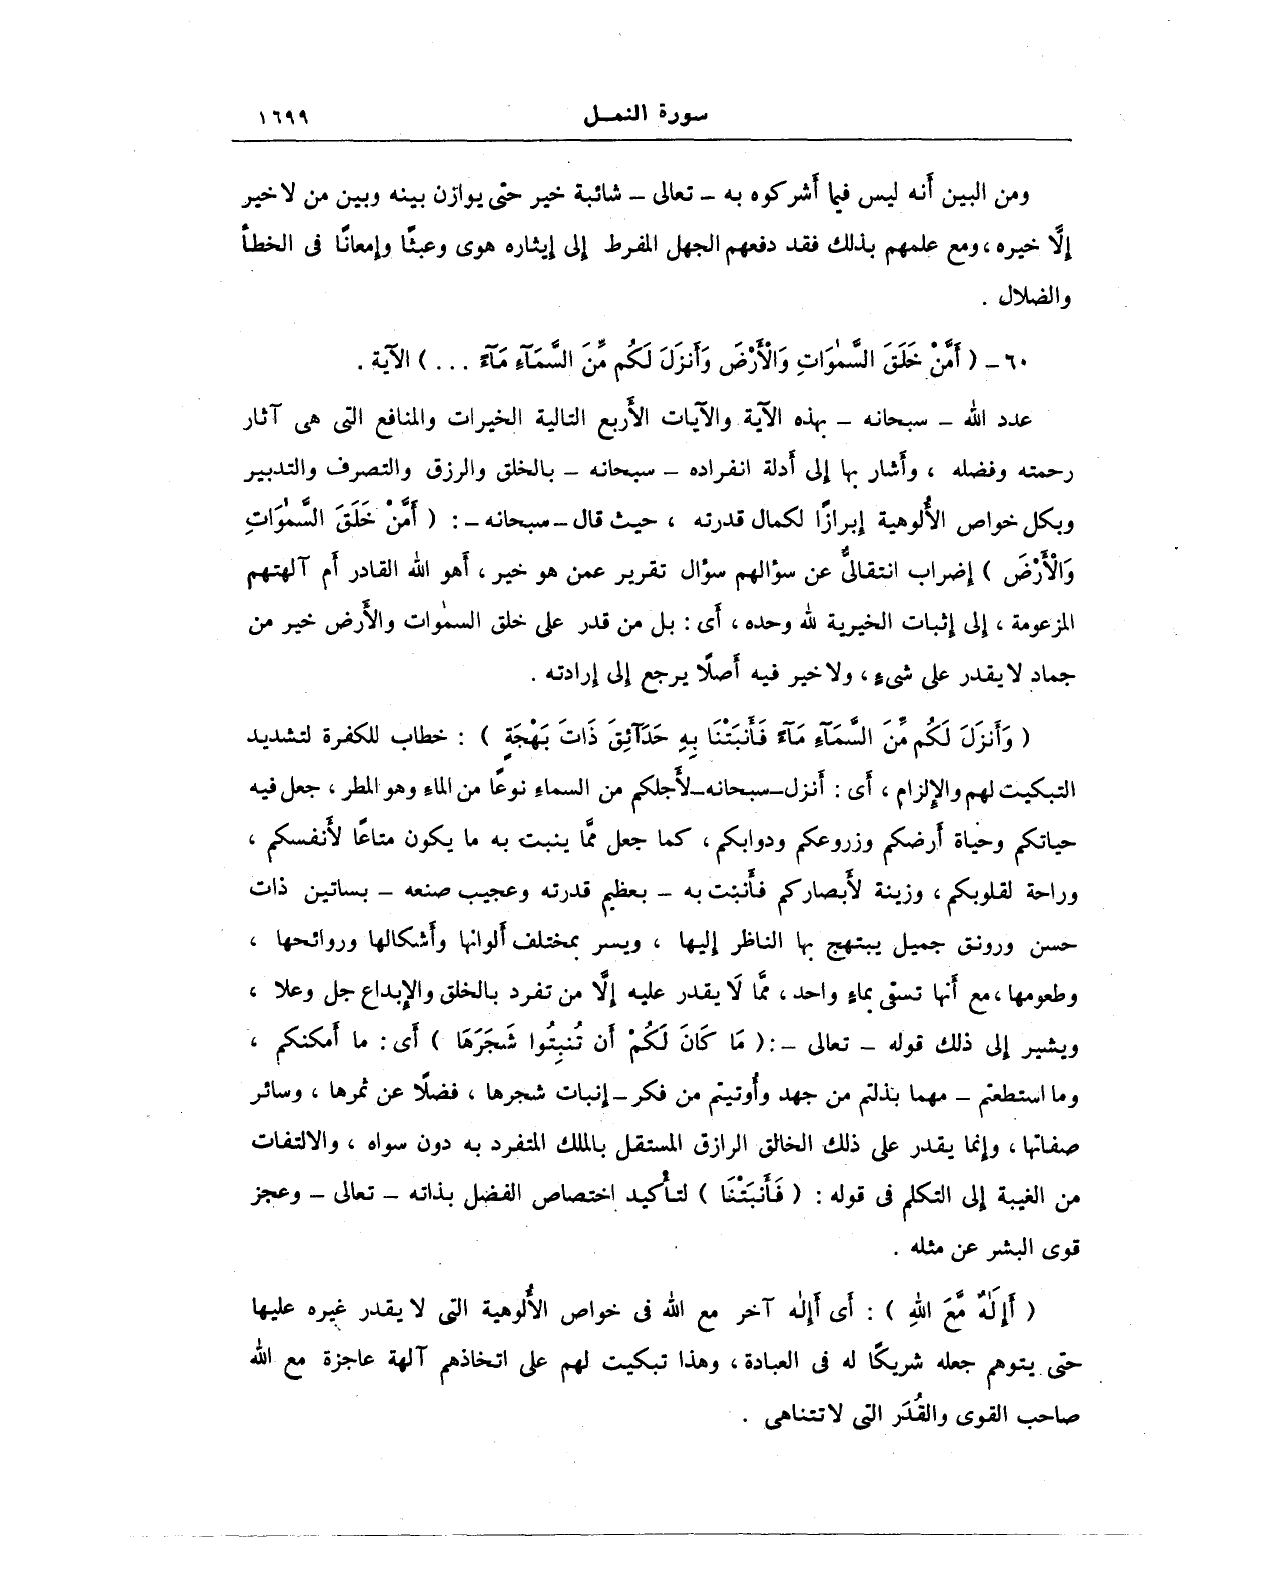 سورة النمـل
١٦٩٩
ومن البين أنه ليس فيما أشركوه به – تعالى – شائبة خير حتى يوازن بينه وبين من لا خير
إلَّا خيره ، ومع علمهم بذلك فقد دفعهم الجهل المفرط إلى إيثاره هوى وعبثًا وإمعانًا فى الخطأ
والضلال .
٦٠ – ( أَمَّنْ خَلَقَ السَّمٰوَاتِ وَالْأَرْضَ وَأَنزَلَ لَكُم مِّنَ السَّمَآءِ مَآءً ... ) الآية .
عدد الله – سبحانه – بهذه الآية والآيات الأربع التالية الخيرات والمنافع التى هى آثار
رحمته وفضله ، وأشار بها إلى أدلة انفراده – سبحانه – بالخلق والرزق والتصرف والتدبير
وبكل خواص الأُلوهية إبرازًا لكمال قدرته ، حيث قال – سبحانه – : ( أَمَّنْ خَلَقَ السَّمٰوَاتِ
وَالْأَرْضَ ) إضراب انتقالىٌّ عن سؤالهم سؤال تقرير عمن هو خير ، أهو الله القادر أم آلهتهم
المزعومة ، إلى إثبات الخيرية لله وحده ، أى : بل من قدر على خلق السمٰوات والأرض خير من
جماد لا يقدر على شىءٍ ، ولا خير فيه أصلًا يرجع إلى إرادته .
( وَأَنزَلَ لَكُم مِّنَ السَّمَآءِ مَآءً فَأَنبَتْنَا بِهِ حَدَآئِقَ ذَاتَ بَهْجَةٍ ) : خطاب للكفرة لتشديد
التبكيت لهم والإلزام ، أى : أنزل – سبحانه – لأجلكم من السماء نوعًا من الماء وهو المطر ، جعل فيه
حياتكم وحياة أرضكم وزروعكم ودوابكم ، كما جعل ممَّا ينبت به ما يكون متاعًا لأنفسكم ،
وراحة لقلوبكم ، وزينة لأبصاركم فأنبت به – بعظيم قدرته وعجيب صنعه – بساتين ذات
حسن ورونق جميل يبتهج بها الناظر إليها ، ويسر بمختلف ألوانها وأشكالها وروائحها ،
وطعومها ، مع أنها تسقى بماءٍ واحد ، ممَّا لَا يقدر عليه إلَّا من تفرد بالخلق والإبداع جل وعلا ،
ويشير إلى ذلك قوله – تعالى – : ( مَا كَانَ لَكُمْ أَن تُنبِتُوا شَجَرَهَا ) أى : ما أمكنكم ،
وما استطعتم – مهما بذلتم من جهد وأُوتيتم من فكر – إنبات شجرها ، فضلًا عن ثمرها ، وسائر
صفاتها ، وإنما يقدر على ذلك الخالق الرازق المستقل بالملك المتفرد به دون سواه ، والالتفات
من الغيبة إلى التكلم فى قوله : ( فَأَنبَتْنَا ) لتأكيد اختصاص الفضل بذاته – تعالى – وعجز
قوى البشر عن مثله .
( أَإِلَـٰهٌ مَّعَ اللهِ ) : أى أإلٰه آخر مع الله فى خواص الأُلوهية التى لا يقدر غيره عليها
حتى يتوهم جعله شريكًا له فى العبادة ، وهذا تبكيت لهم على اتخاذهم آلهة عاجزة مع الله
صاحب القوى والقُدَر التى لا تتناهى .